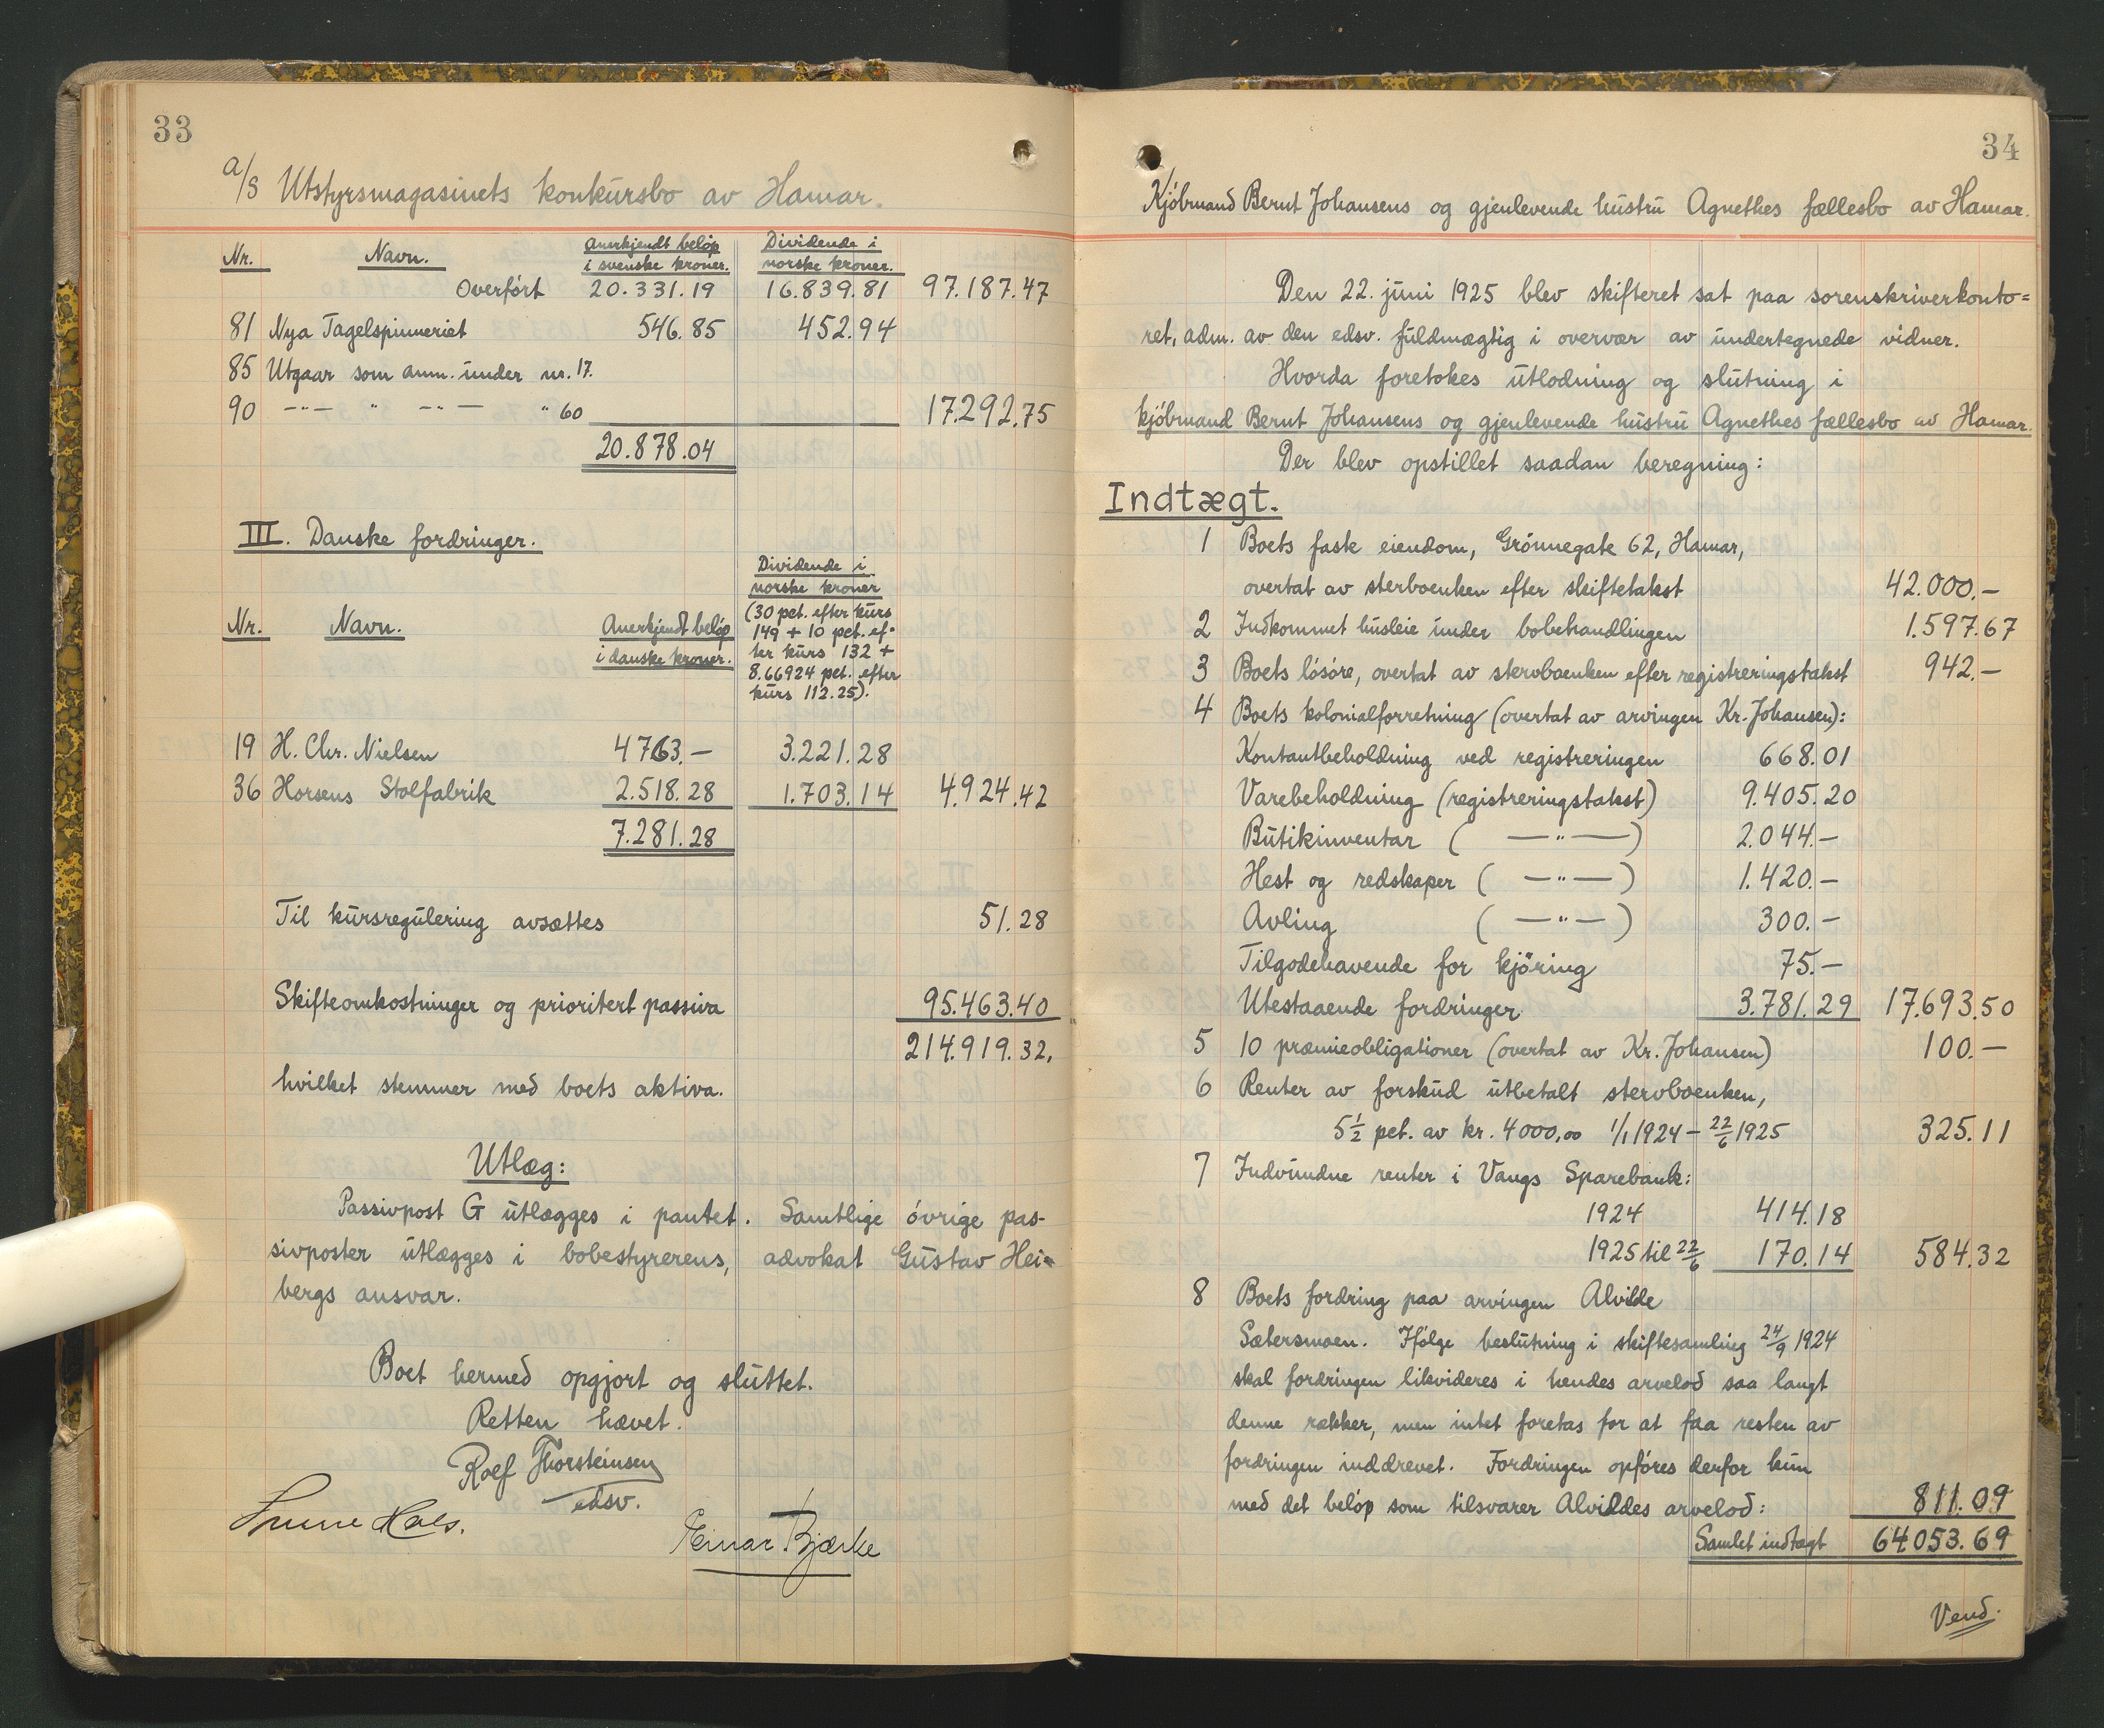 33
a/s Utstyrsmagasinets konkursbo av Hamar.
Nr. Navn. Anerkjendt beløp i svenske kroner. Dividende i norske kroner.
Overført 20.331.19 16.839.81 97.187.47
81 Nya Tagelspinneriet 546.85 452.94
85 Utgaar som anm. under nr. 17.
90 -"- " -"- " 60 17.292.75
20.878.04
III. Danske fordringer.
Nr. Navn. Anerkjendt beløp i danske kroner. Dividende i norske kroner
(30 pct. efter kurs
149 + 10 pct. ef-
ter kurs 132 +
8.66924 pct. efter
kurs 112.25).
19 H. Chr. Nielsen 4763.- 3.221.28
36 Horsens Stolfabrik 2.518.28 1.703.14 4.924.42
7.281.28
Til kursregulering avsættes 51.28
Skifteomkostninger og prioritert passiva 95.463.40
214.919.32.
hvilket stemmer med boets aktiva.
Utlæg:
Passivpost G utlægges i pantet. Samtlige øvrige pas-
sivposter utlægges i bobestyrerens, advokat Gustav Hei=
bergs ansvar.
Boet hermed opgjort og sluttet.
Retten hævet.
Rolf Thorsteinsen
edsv.
Einar Bjærke
34
Kjøbmand Bernt Johansens og gjenlevende hustru Agnethes fællesbo av Hamar.
Den 22. juni 1925 blev skifteret sat paa sorenskriverkonto=
ret, adm. av den edsv. fuldmægtig i overvær av undertegnede vidner.
Hvorda foretokes utlodning og slutning i
kjøbmand Bernt Johansens og gjenlevende hustru Agnethes fællesbo av Hamar.
Der blev opstillet saadan beregning:
Indtægt.
1 Boets faste eiendom, Grønnegate 62, Hamar,
overtat av sterboenken efter skiftetakst 42.000.-
2 Indkommet husleie under bobehandlingen 1.597.67
3 Boets løsøre, overtat av stervboenken efter registreringstakst 942.-
4 Boets kolonialforretning (overtat av arvingen Kr. Johansen):
Kontantbeholdning ved registreringen 668.01
Varebeholdning (registreringstakst) 9.405.20
Butikinventar ( -"- ) 2.044.-
Hest og redskaper ( -"- ) 1.420.-
Avling ( -"- ) 300.-
Tilgodehavende for kjøring 75.-
Utestaaende fordringer 3.781.29 17.693.50
5 10 præmieobligationer (overtat av Kr. Johansen) 100.-
6 Renter av forskud utbetalt stervboenken,
5½ pct. av kr. 4000,00 1/1 1924 - 22/6 1925 325.11
7 Indvundne renter i Vangs Sparebank:
1924 414.18
1925 til 22/6 170.14 584.32
8 Boets fordring paa arvingen Alvilde
Sætersmoen. Ifølge beslutning i skiftesamling 24/9 1924
skal fordringen likvideres i hendes arvelod saa langt
denne rækker, men intet foretas for at faa resten av
fordringen inddrevet. Fordringen opføres derfor kun
med det beløp som tilsvarer Alvildes arvelod: 811.09
Samlet indtægt 64053.69
Vend.